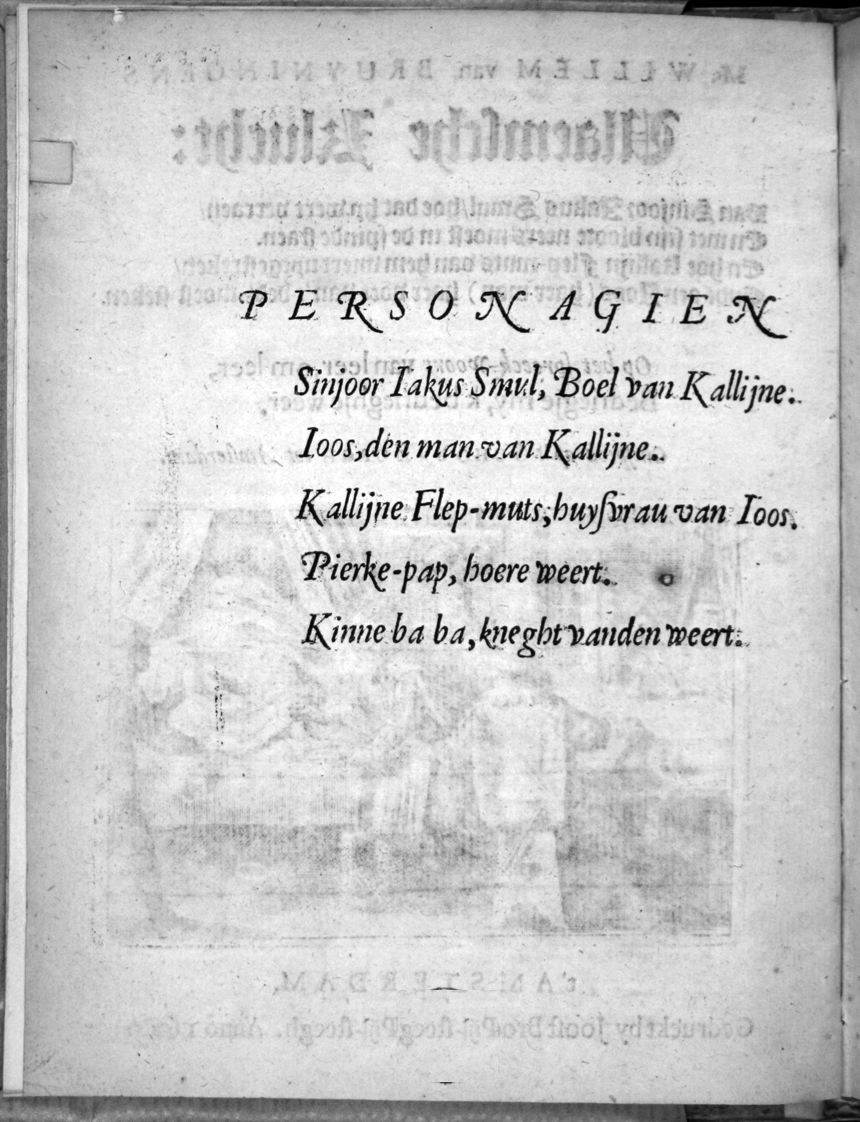 PERSONAGIEN
Sinjoor Iakus Smul, Boel van Kallijne.
Ioos, den man van Kallijne.
Kallijne Flep-muts, huysvrau van Ioos.
Pierke-pap, hoere weert.
Kinne ba ba, kneght vanden weert.